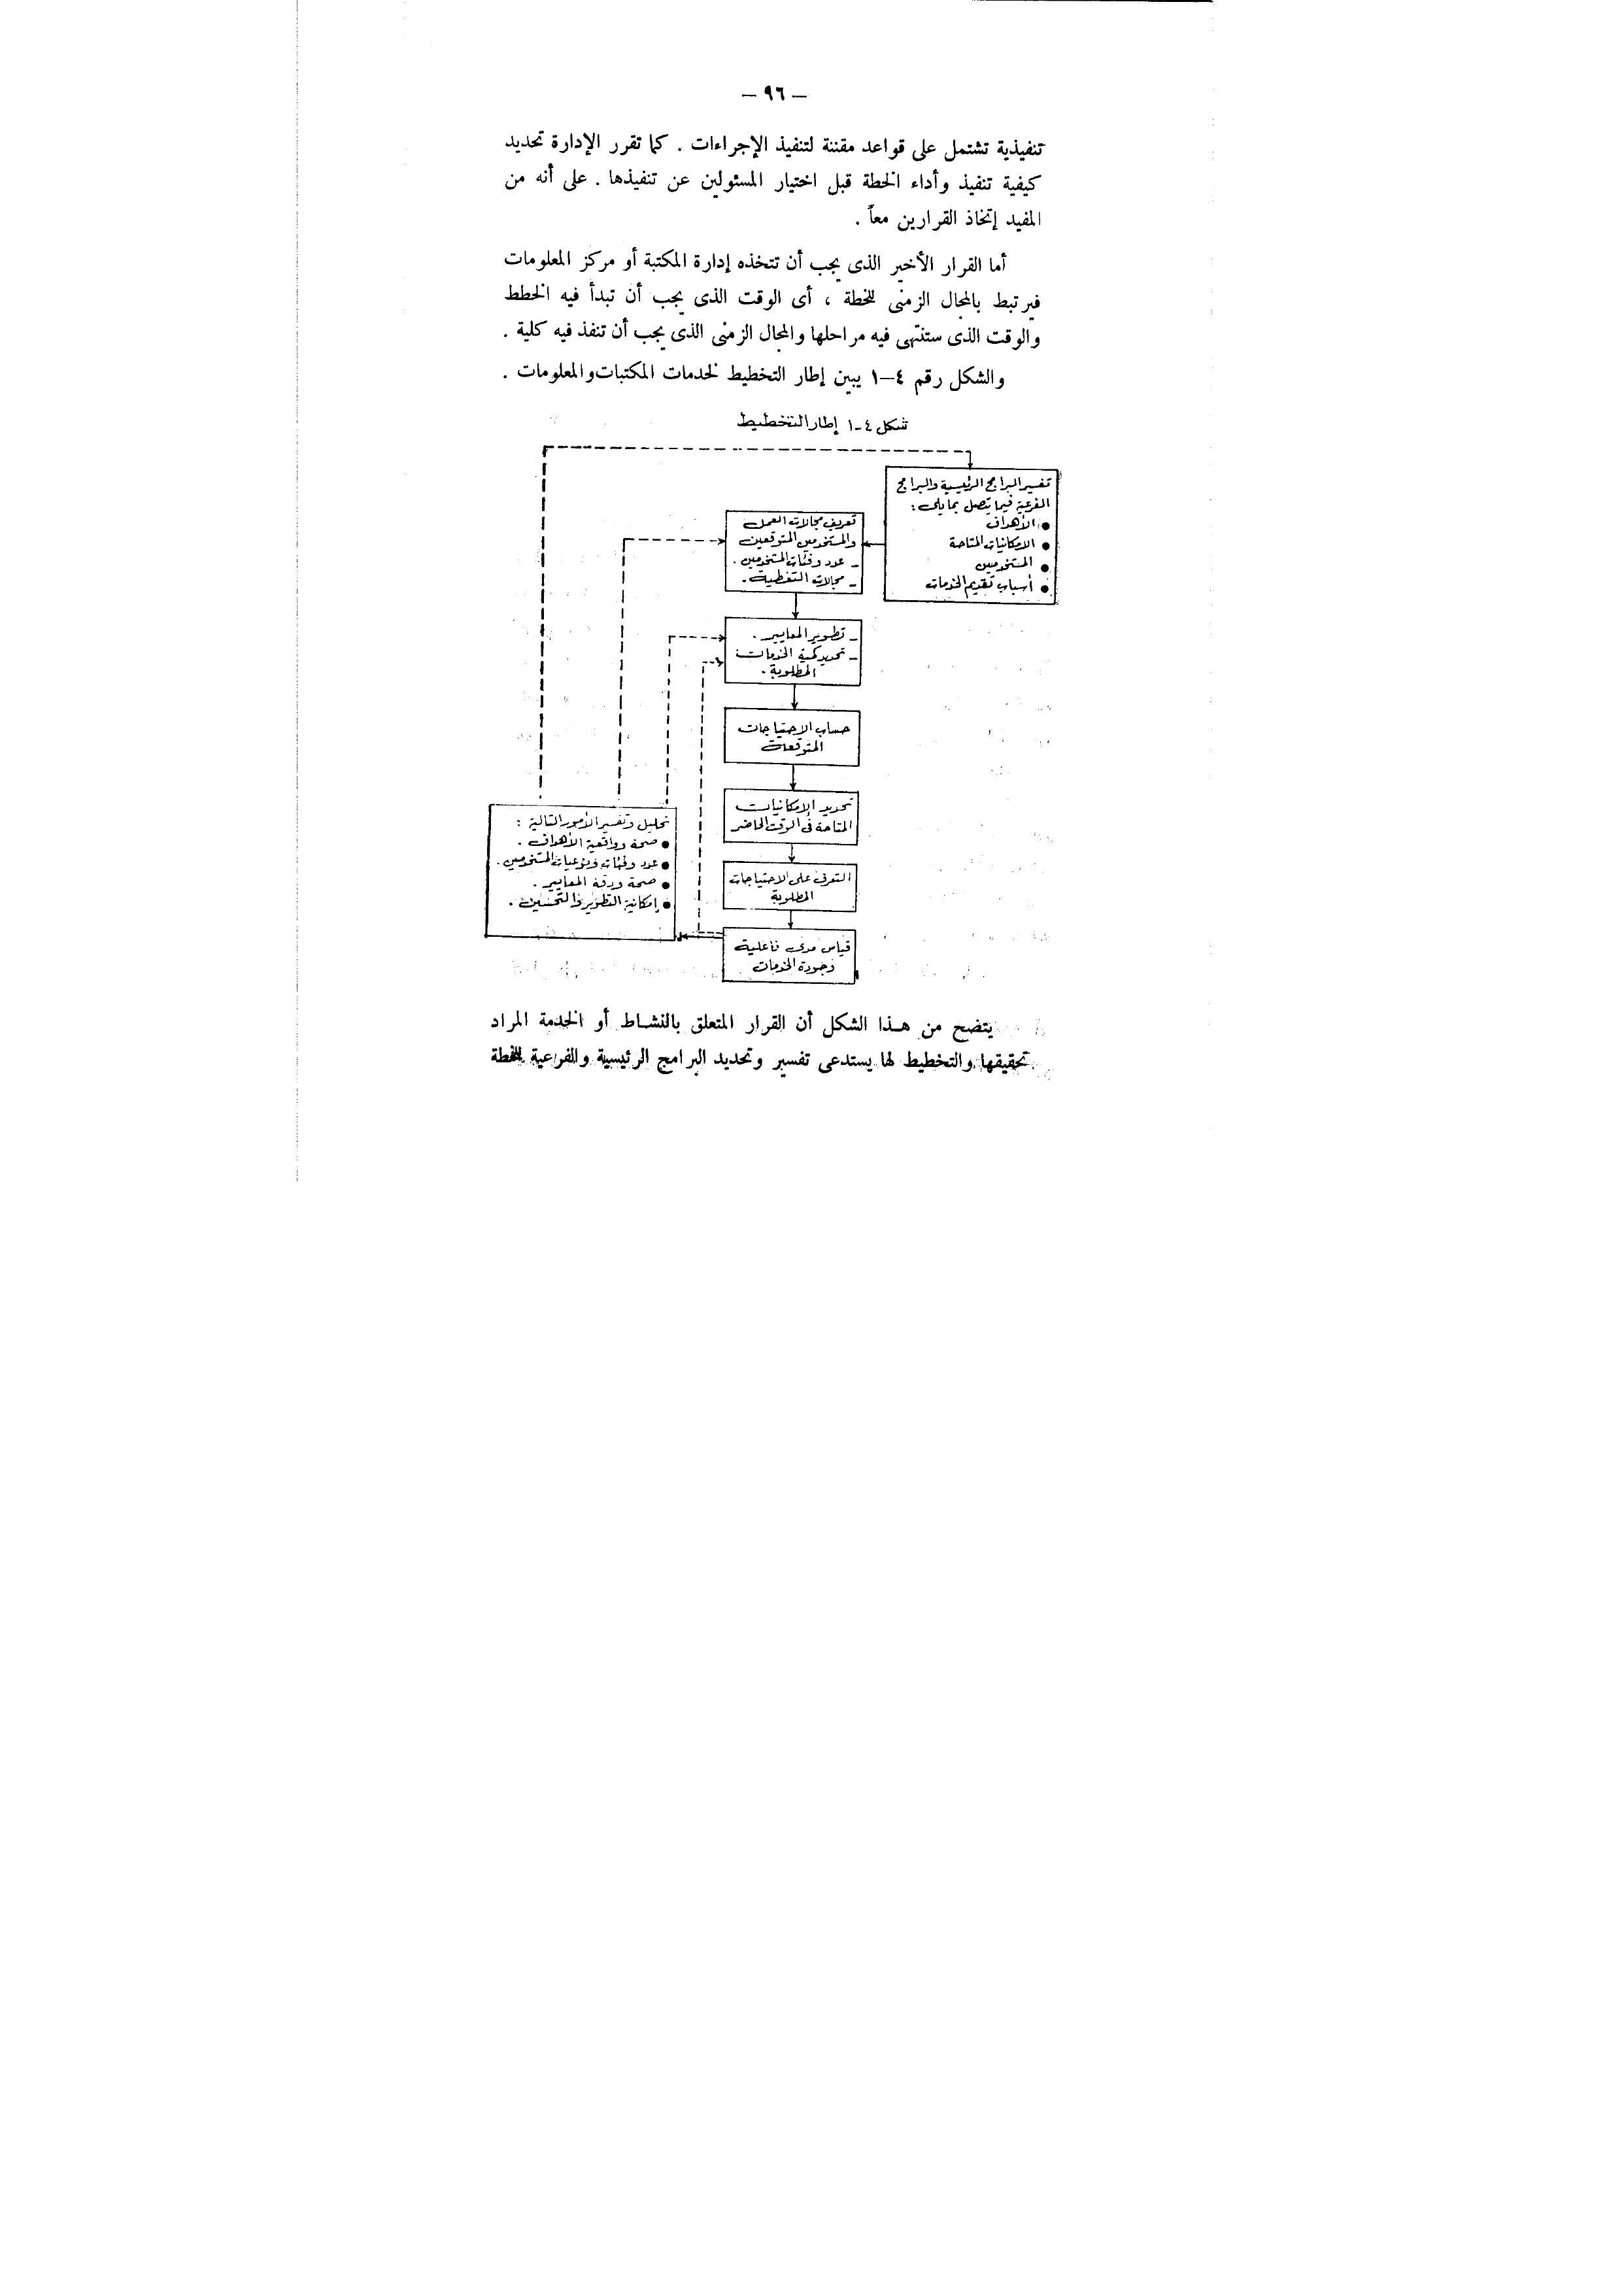 — ٩٦ —
تنفيذية تشتمل على قواعد مقننة لتنفيذ الإجراءات . كما تقرر الإدارة تحديد
كيفية تنفيذ وأداء الخطة قبل اختيار المسئولين عن تنفيذها . على أنه من
المفيد إتخاذ القرارين معاً .
أما القرار الأخير الذى يجب أن تتخذه إدارة المكتبة أو مركز المعلومات
فيرتبط بالمجال الزمنى للخطة ، أى الوقت الذى يجب أن تبدأ فيه الخطط
والوقت الذى ستنتهى فيه مراحلها والمجال الزمنى الذى يجب أن تنفذ فيه كلية .
والشكل رقم ٤–١ يبين إطار التخطيط لخدمات المكتبات والمعلومات .
شكل ٤-١ إطار التخطيط
تفسير البرامج الرئيسية والبرامج
الفرعية فيما يتصل بما يلى :
● الأهداف
● الامكانيات المتاحة
● المستخدمين
● أسباب تقديم الخدمات
تعريف مجالات العمل
والمستخدمين المتوقعين
- عدد وفئات المستخدمين .
- مجالات التغطية .
- تطوير المعايير .
- تحديد كمية الخدمات
المطلوبة .
حساب الاحتياجات
المتوقعات
تحديد الإمكانيات
المتاحة فى الوقت الحاضر
التعرف على الاحتياجات
المطلوبة
قياس مدى فاعلية
وجودة الخدمات
تحليل وتفسير الأمور التالية :
● صحة وواقعية الأهداف .
● عدد وفئات ونوعيات المستخدمين .
● صحة ودقة المعايير .
● إمكانية التطوير والتحسين .
يتضح من هـذا الشكل أن القرار المتعلق بالنشـاط أو الخدمة المراد
تحقيقها والتخطيط لها يستدعى تفسير وتحديد البرامج الرئيسية والفرعية للخطة